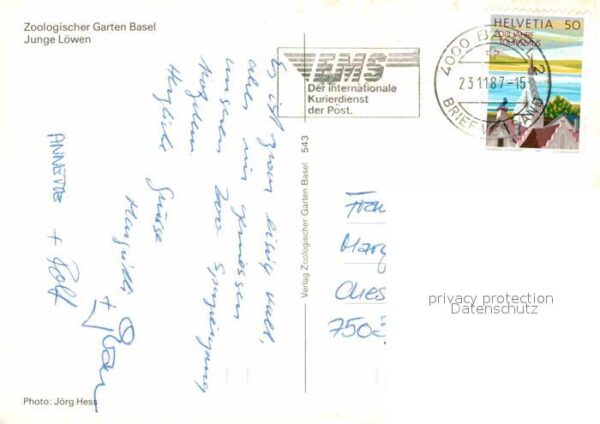 Zoologischer Garten Basel
Junge Löwen
EMS
Der internationale
Kurierdienst
der Post.
4000 BASEL 2
23.11.87-15
BRIEFVERSAND
HELVETIA 50
200 JAHRE
TOURISMUS
Es ist zwar eisig kalt,
aber wir geniessen
unseren Zoo Spaziergang
trotzdem.
Herzliche Grüsse
+
ANNETTE + Rolf
Verlag Zoologischer Garten Basel 543
Frau
Marg
Ches
750
privacy protection
Datenschutz
Photo: Jörg Hess